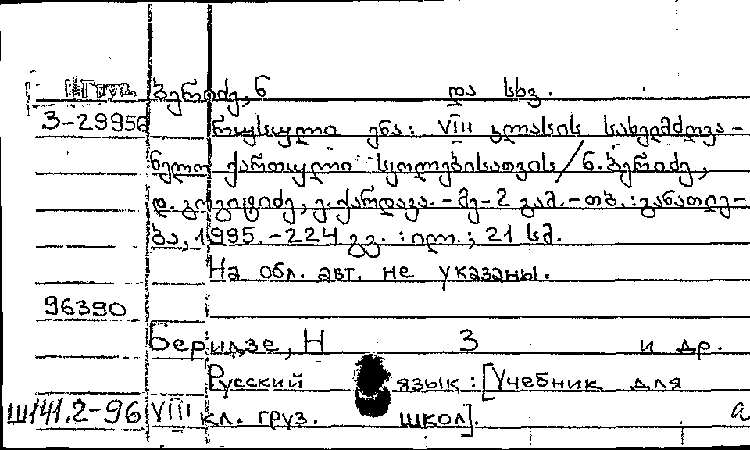 ბერიძე, ნ და სხვ.
3-29956 რუსული ენა: VIII კლასის სახელმძღვა-
ნელო ქართული სკოლებისათვის / ნ. ბერიძე,
ე. ქარდავა. - მე-2 გამ. - თბ. : განათლე-
ბა, 1995. - 224 გვ. : ილ. ; 21 სმ.
На обл. авт. не указаны.
96390
Беридзе, Н З и др.
Русский язык : [Учебник для
Ш141.2-96 VIII кл. груз. школ]. а